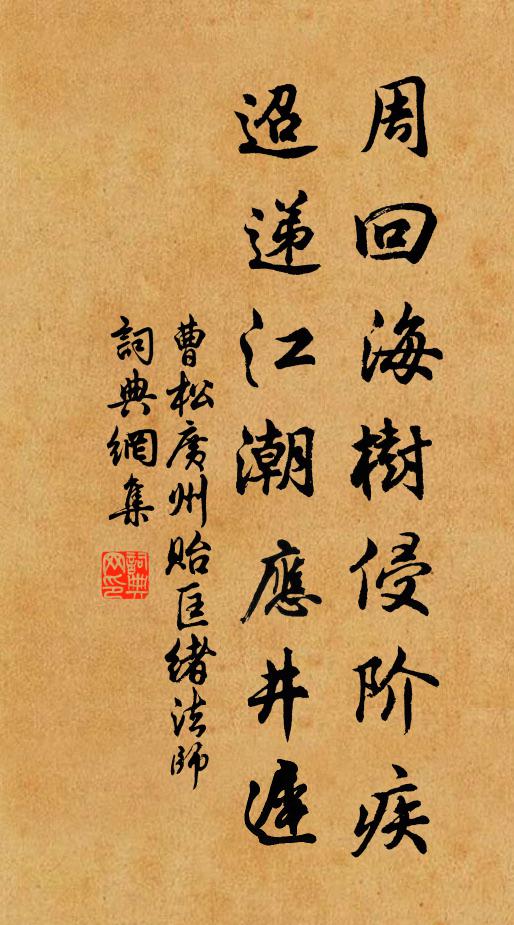 周回海樹侵阶疾
迢递江潮應井遲
曹松廣州貽匡緒法師
詞典網集
詞典網印